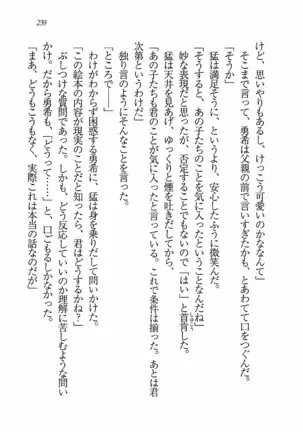 239
けど、思いやりもあるし、けっこう可愛いのかななんて」
そこまで言って、勇希は父親の前で言いすぎたかも、とあわてて口をつぐんだ。
「そうか」
猛は満足そうに、というより、安心したふうに微笑んだ。
「そうすると、あの子たちのことを気に入ったということなんだね」
妙な表現だと思ったが、否定することでもないので「はい」と首肯した。
しゅこう
猛は天井を見あげ、ゆっくりと煙を吐きだしてから、
「あの子たちも君のことが気に入ったみたいだし、これで条件は揃った。あとは君
次第というわけだ」
独り言のようにそんなことを言った。
「ところで――」
わけがわからず困惑する勇希に、猛は身を乗りだして問いかけた。
「この絵本の内容が現実のことだと知ったら、君はどうするかね?」
ぶしつけな質問であった。しかも、どう反応していいのか理解に苦しむような問い
かけ。だから勇希も、「どうって……」と、口ごもるしかなかった。
「まあ、どうもこうもなく、実際これは本当の話なのだが」